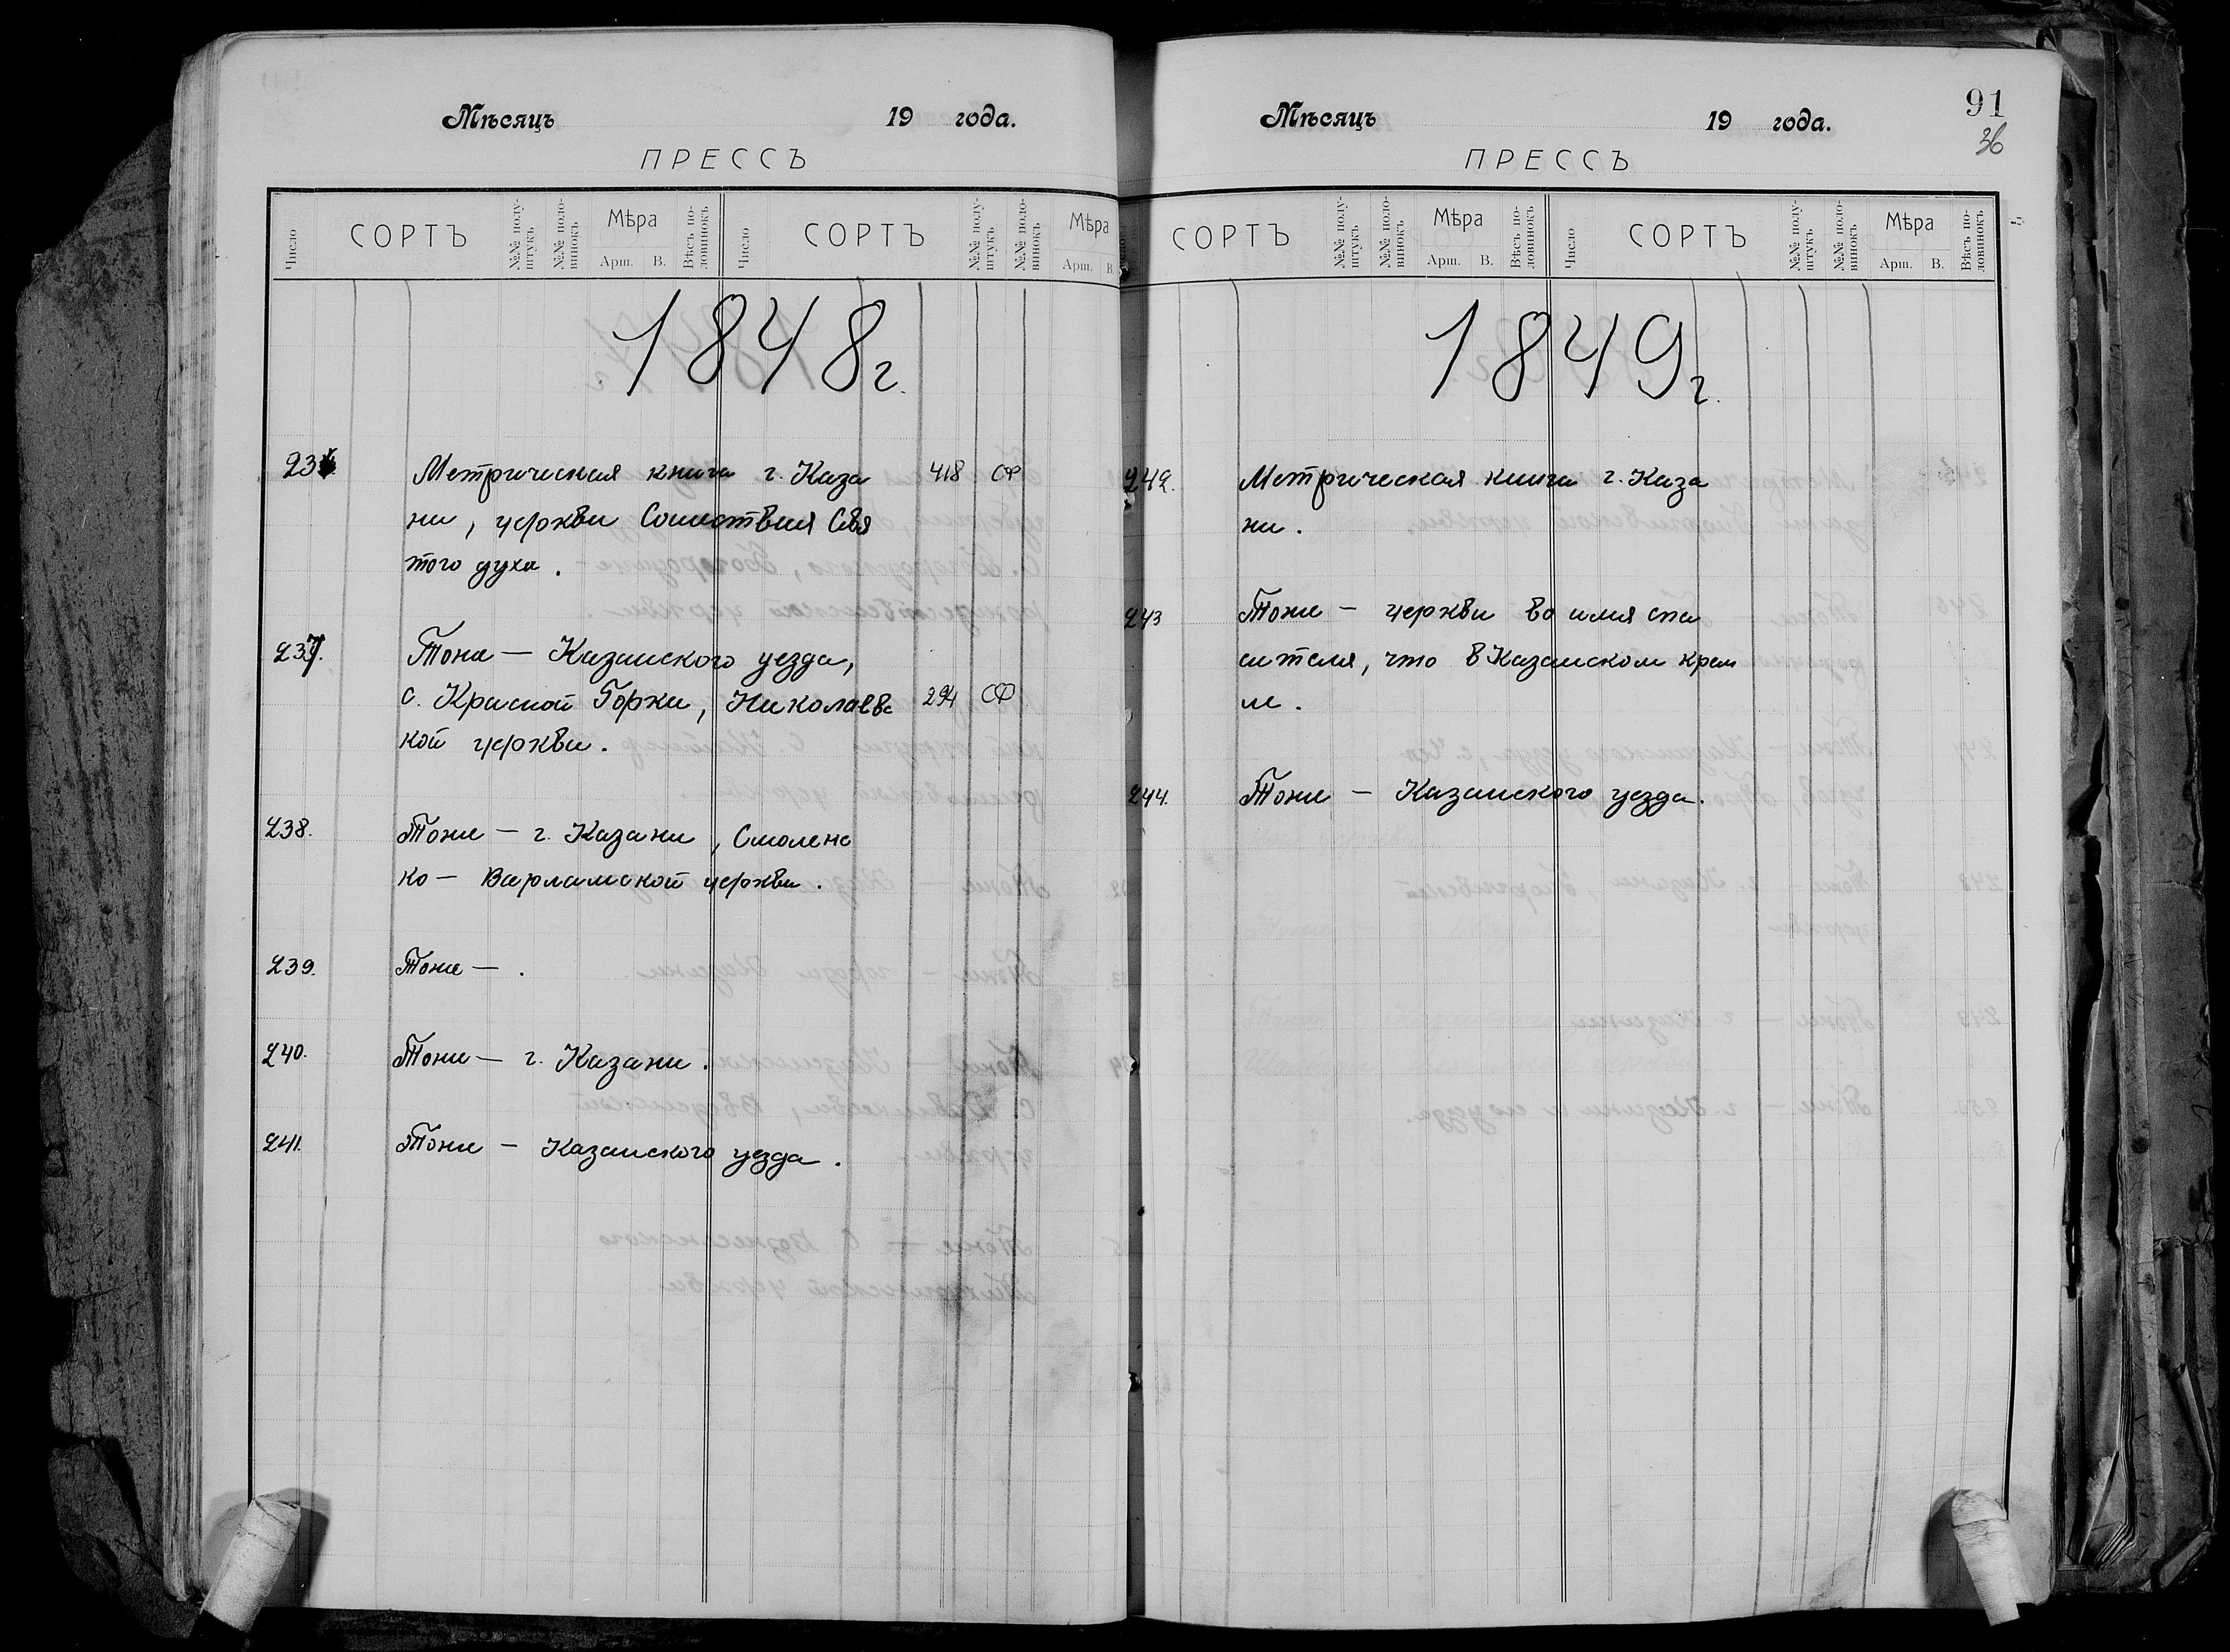 Мѣсяцъ 19 года.
ПРЕССЪ
Число СОРТЪ №№ полу-штукъ №№ поло-винокъ Мѣра Арш. В. Вѣсъ по-ловинокъ Число СОРТЪ №№ полу-штукъ №№ поло-винокъ Мѣра Арш. В.
1848г.
Метрическая книга г. Каза 418 СФ
ни, церкви Сошествия Свя
того духа.
237. Тоже — Казанского уезда,
с. Красной Горки, Николаевс 294 СФ
кой церкви.
238. Тоже — г. Казани, Смоленс
ко — Варламской церкви.
239. Тоже — .
240. Тоже — г. Казани.
241. Тоже — Казанского уезда.
91
36
Мѣсяцъ 19 года.
ПРЕССЪ
СОРТЪ №№ полу-штукъ №№ поло-винокъ Мѣра Арш. В. Вѣсъ по-ловинокъ Число СОРТЪ №№ полу-штукъ №№ поло-винокъ Мѣра Арш. В. Вѣсъ по-ловинокъ
1849г.
242. Метрическая книга г. Каза
ни.
243 Тоже — церкви во имя спа
сителя, что в Казанском крем
ле.
244. Тоже — Казанского уезда.